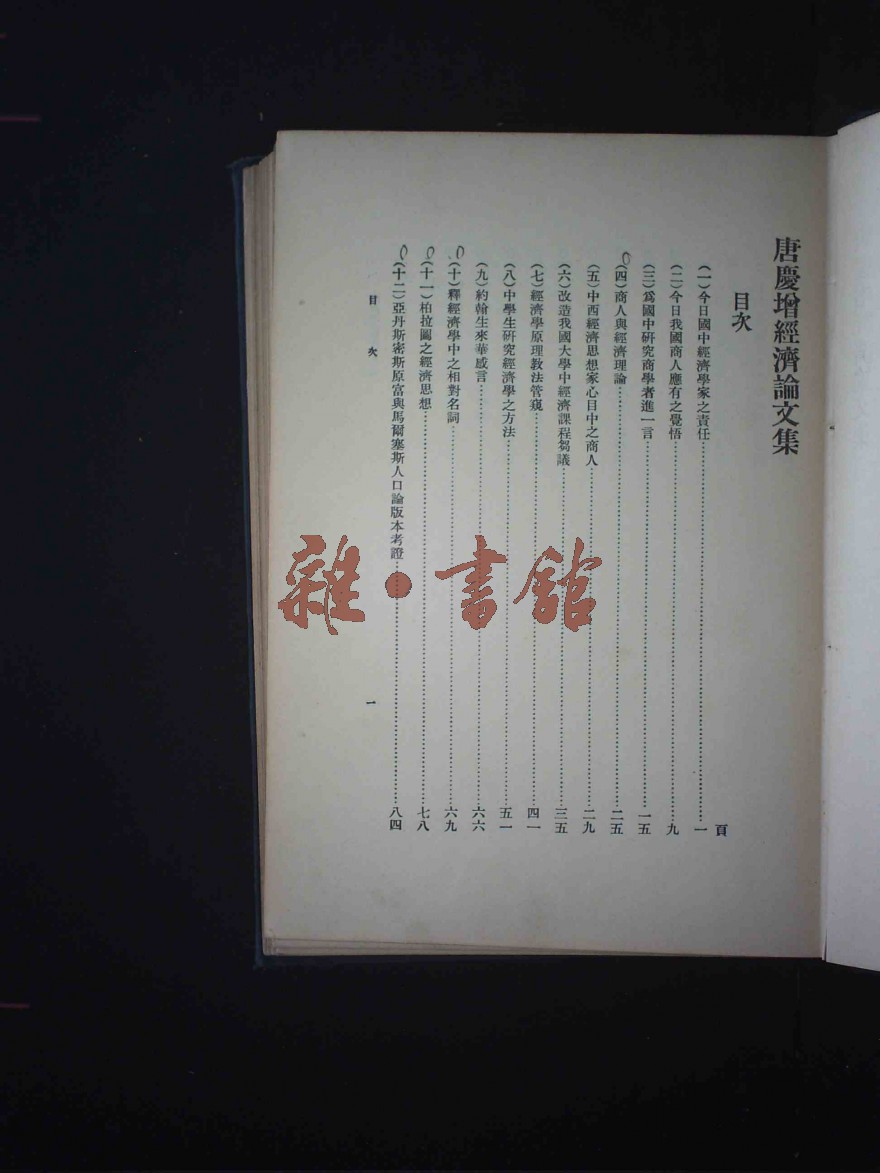 唐慶增經濟論文集
目次
頁
(一)今日國中經濟學家之責任……一
(二)今日我國商人應有之覺悟……九
(三)爲國中研究商學者進一言……一五
(四)商人與經濟理論……二五
(五)中西經濟思想家心目中之商人……二九
(六)改造我國大學中經濟課程芻議……三五
(七)經濟學原理教法管窺……四一
(八)中學生研究經濟學之方法……五一
(九)約翰生來華感言……六六
(十)釋經濟學中之相對名詞……六九
(十一)柏拉圖之經濟思想……七八
(十二)亞丹斯密斯原富與馬爾塞斯人口論版本考證……八四
目次 一
雜·書館